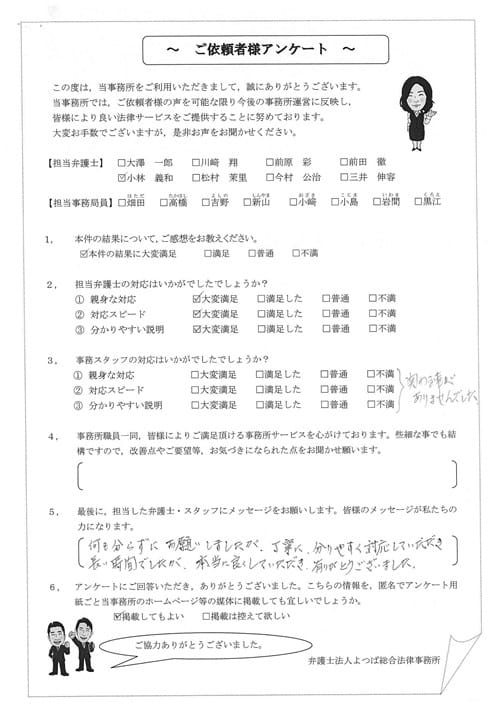 ～ ご依頼者様アンケート ～
この度は，当事務所をご利用いただきまして，誠にありがとうございます。
当事務所では，ご依頼者様の声を可能な限り今後の事務所運営に反映し，
皆様により良い法律サービスをご提供することに努めております。
大変お手数でございますが，是非お声をお聞かせください。
【担当弁護士】 □大澤 一郎 □川﨑 翔 □前原 彩 □前田 徹
☑小林 義和 □松村 茉里 □今村 公治 □三井 伸容
はただ たかはし よしの しんやま おざき こじま いわま くろえ
【担当事務局員】 □畑田 □高橋 □吉野 □新山 □小﨑 □小島 □岩間 □黒江
1． 本件の結果について，ご感想をお教えください。
☑本件の結果に大変満足 □満足 □普通 □不満
2． 担当弁護士の対応はいかがでしたでしょうか？
① 親身な対応 ☑大変満足 □満足した □普通 □不満
② 対応スピード ☑大変満足 □満足した □普通 □不満
③ 分かりやすい説明 ☑大変満足 □満足した □普通 □不満
3． 事務スタッフの対応はいかがでしたでしょうか？
① 親身な対応 □大変満足 □満足した □普通 □不満
② 対応スピード □大変満足 □満足した □普通 □不満
③ 分かりやすい説明 □大変満足 □満足した □普通 □不満
ありませんでした
4． 事務所職員一同，皆様によりご満足頂ける事務所サービスを心がけております。些細な事でも結
構ですので，改善点やご要望等，お気づきになられた点をお聞かせ願います。
5． 最後に，担当した弁護士・スタッフにメッセージをお願いします。皆様のメッセージが私たちの
力になります。
何も分らずに お願いしましたが、丁寧に、分りやすく対応していただき
長い時間でしたが、本当に良くしていただき、ありがとうございました。
6． アンケートにご回答いただき，ありがとうございました。こちらの情報を，匿名でアンケート用
紙ごと当事務所のホームページ等の媒体に掲載しても宜しいでしょうか。
☑掲載してもよい □掲載は控えて欲しい
ご協力ありがとうございました。
弁護士法人よつば総合法律事務所